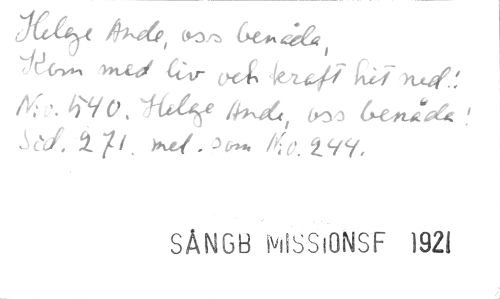 Helge Ande, oss benåda,
Kom med liv och kraft hit ned!
N:o. 540. Helge Ande, oss benåda!
Sid. 271. mel. som N:o. 244.
SÅNGB MISSIONSF 1921